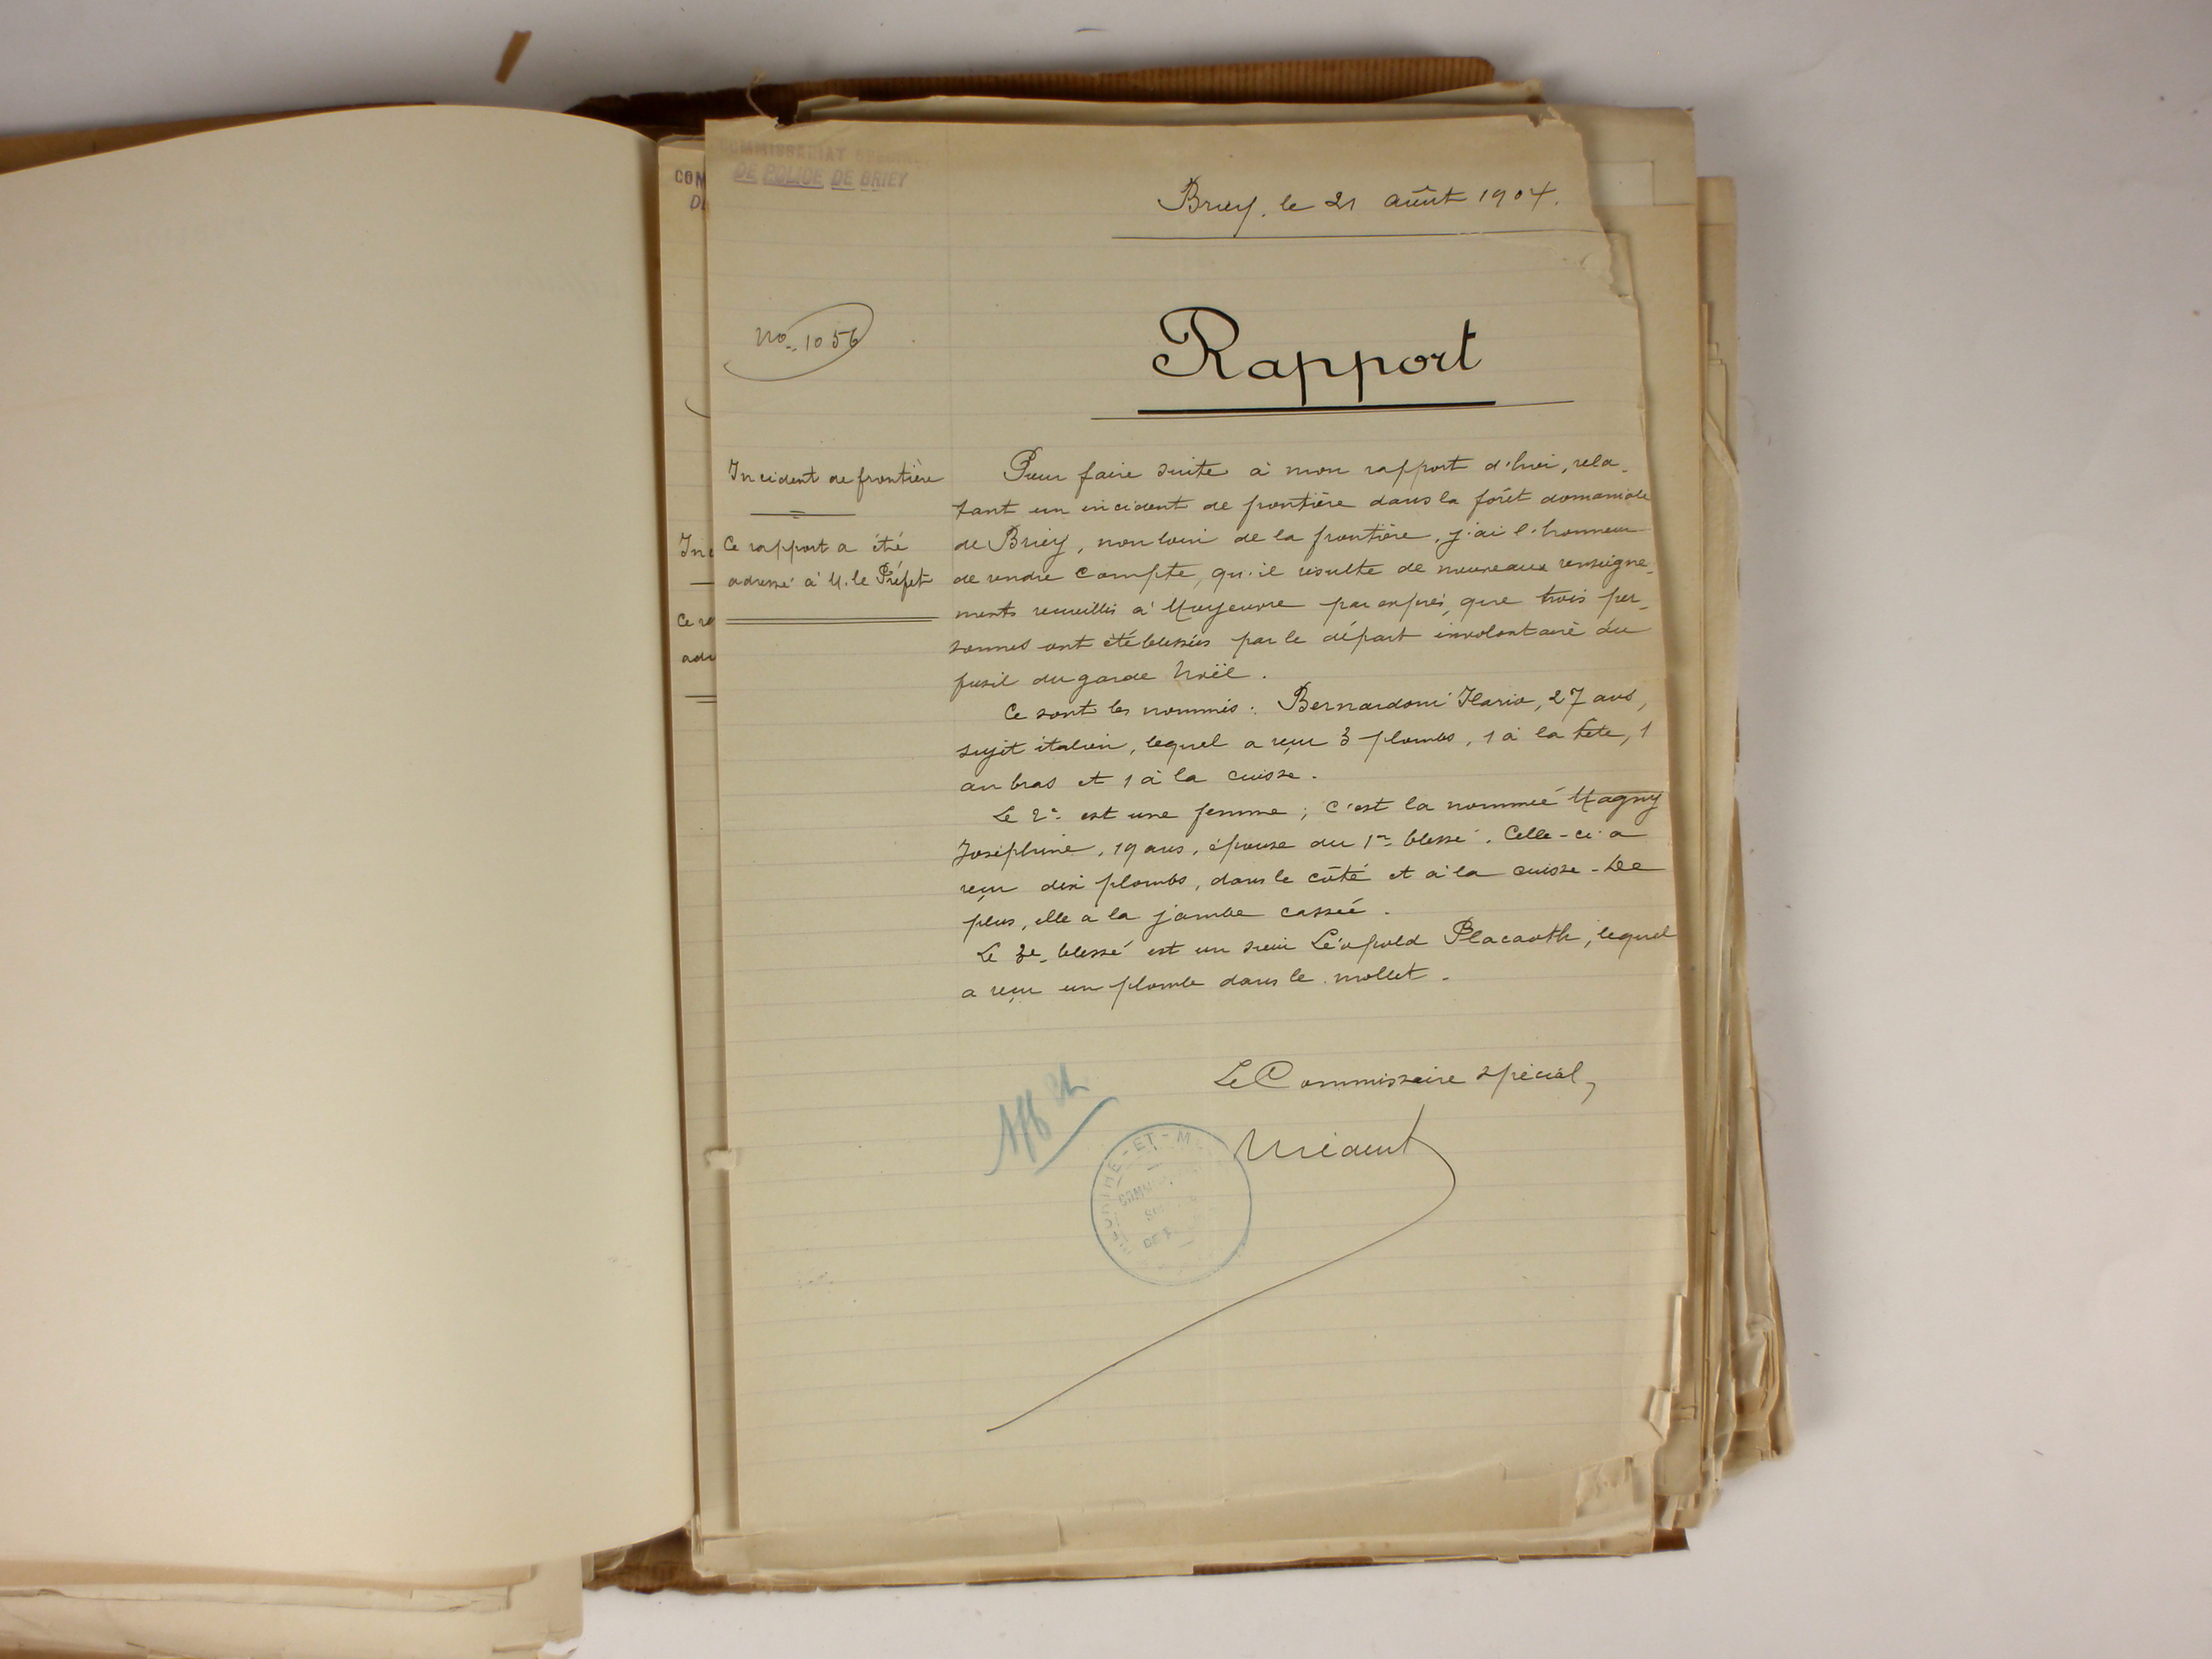 COMMISSARIAT SPÉCIAL
DE POLICE DE BRIEY
Briey. le 21 août 1904.
No. 1056
Rapport
Incident de frontière
Ce rapport a été
adressé à M. le Préfet
Pour faire suite à mon rapport d'hier, rela-
tant un incident de frontière dans la forêt domaniale
de Briey, non loin de la frontière, j'ai l'honneur
de rendre compte, qu'il résulte de nouveaux renseigne-
ments recueillis à Moyeuvre par exprès, que trois per-
sonnes ont été blessées par le départ involontaire du
fusil du garde Noël.
Ce sont les nommés : Bernardoni Ilario, 27 ans,
sujet italien, lequel a reçu 3 plombs, 1 à la tête, 1
au bras et 1 à la cuisse.
Le 2e est une femme ; c'est la nommée Magny
Joséphine, 19 ans, épouse du 1er blessé. Celle-ci a
reçu dix plombs, dans le côté et à la cuisse - De
plus, elle a la jambe cassée.
Le 3e blessé est un sieur Léopold Placaoth, lequel
a reçu un plomb dans le mollet.
Le Commissaire spécial,
COM
In
Ce ra
adr